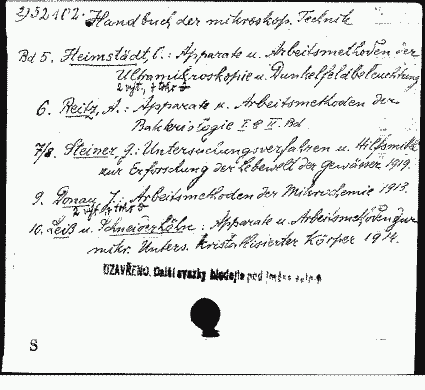 2) 52102. Handbuch der mikroskop. Technik
Bd 5. Heimstädt, O.: Apparate u. Arbeitsmethoden der
Ultramikroskopie u. Dunkelfeldbeleuchtung
6. Reitz, A.: Apparate u. Arbeitsmethoden der
Bakteriologie I & II. Bd
7/8. Steiner, G.: Untersuchungsverfahren u. Hilfsmittel
zur Erforschung der Lebewelt der Gewässer 1919.
9. Donau, J.: Arbeitsmethoden der Mikrochemie 1913.
10. Leiß u. Schneiderhöhn: Apparate u. Arbeitsmethoden zur
mikr. Unters. kristallisierter Körper 1914.
UZAVŘENO. Další svazky hledejte pod
S